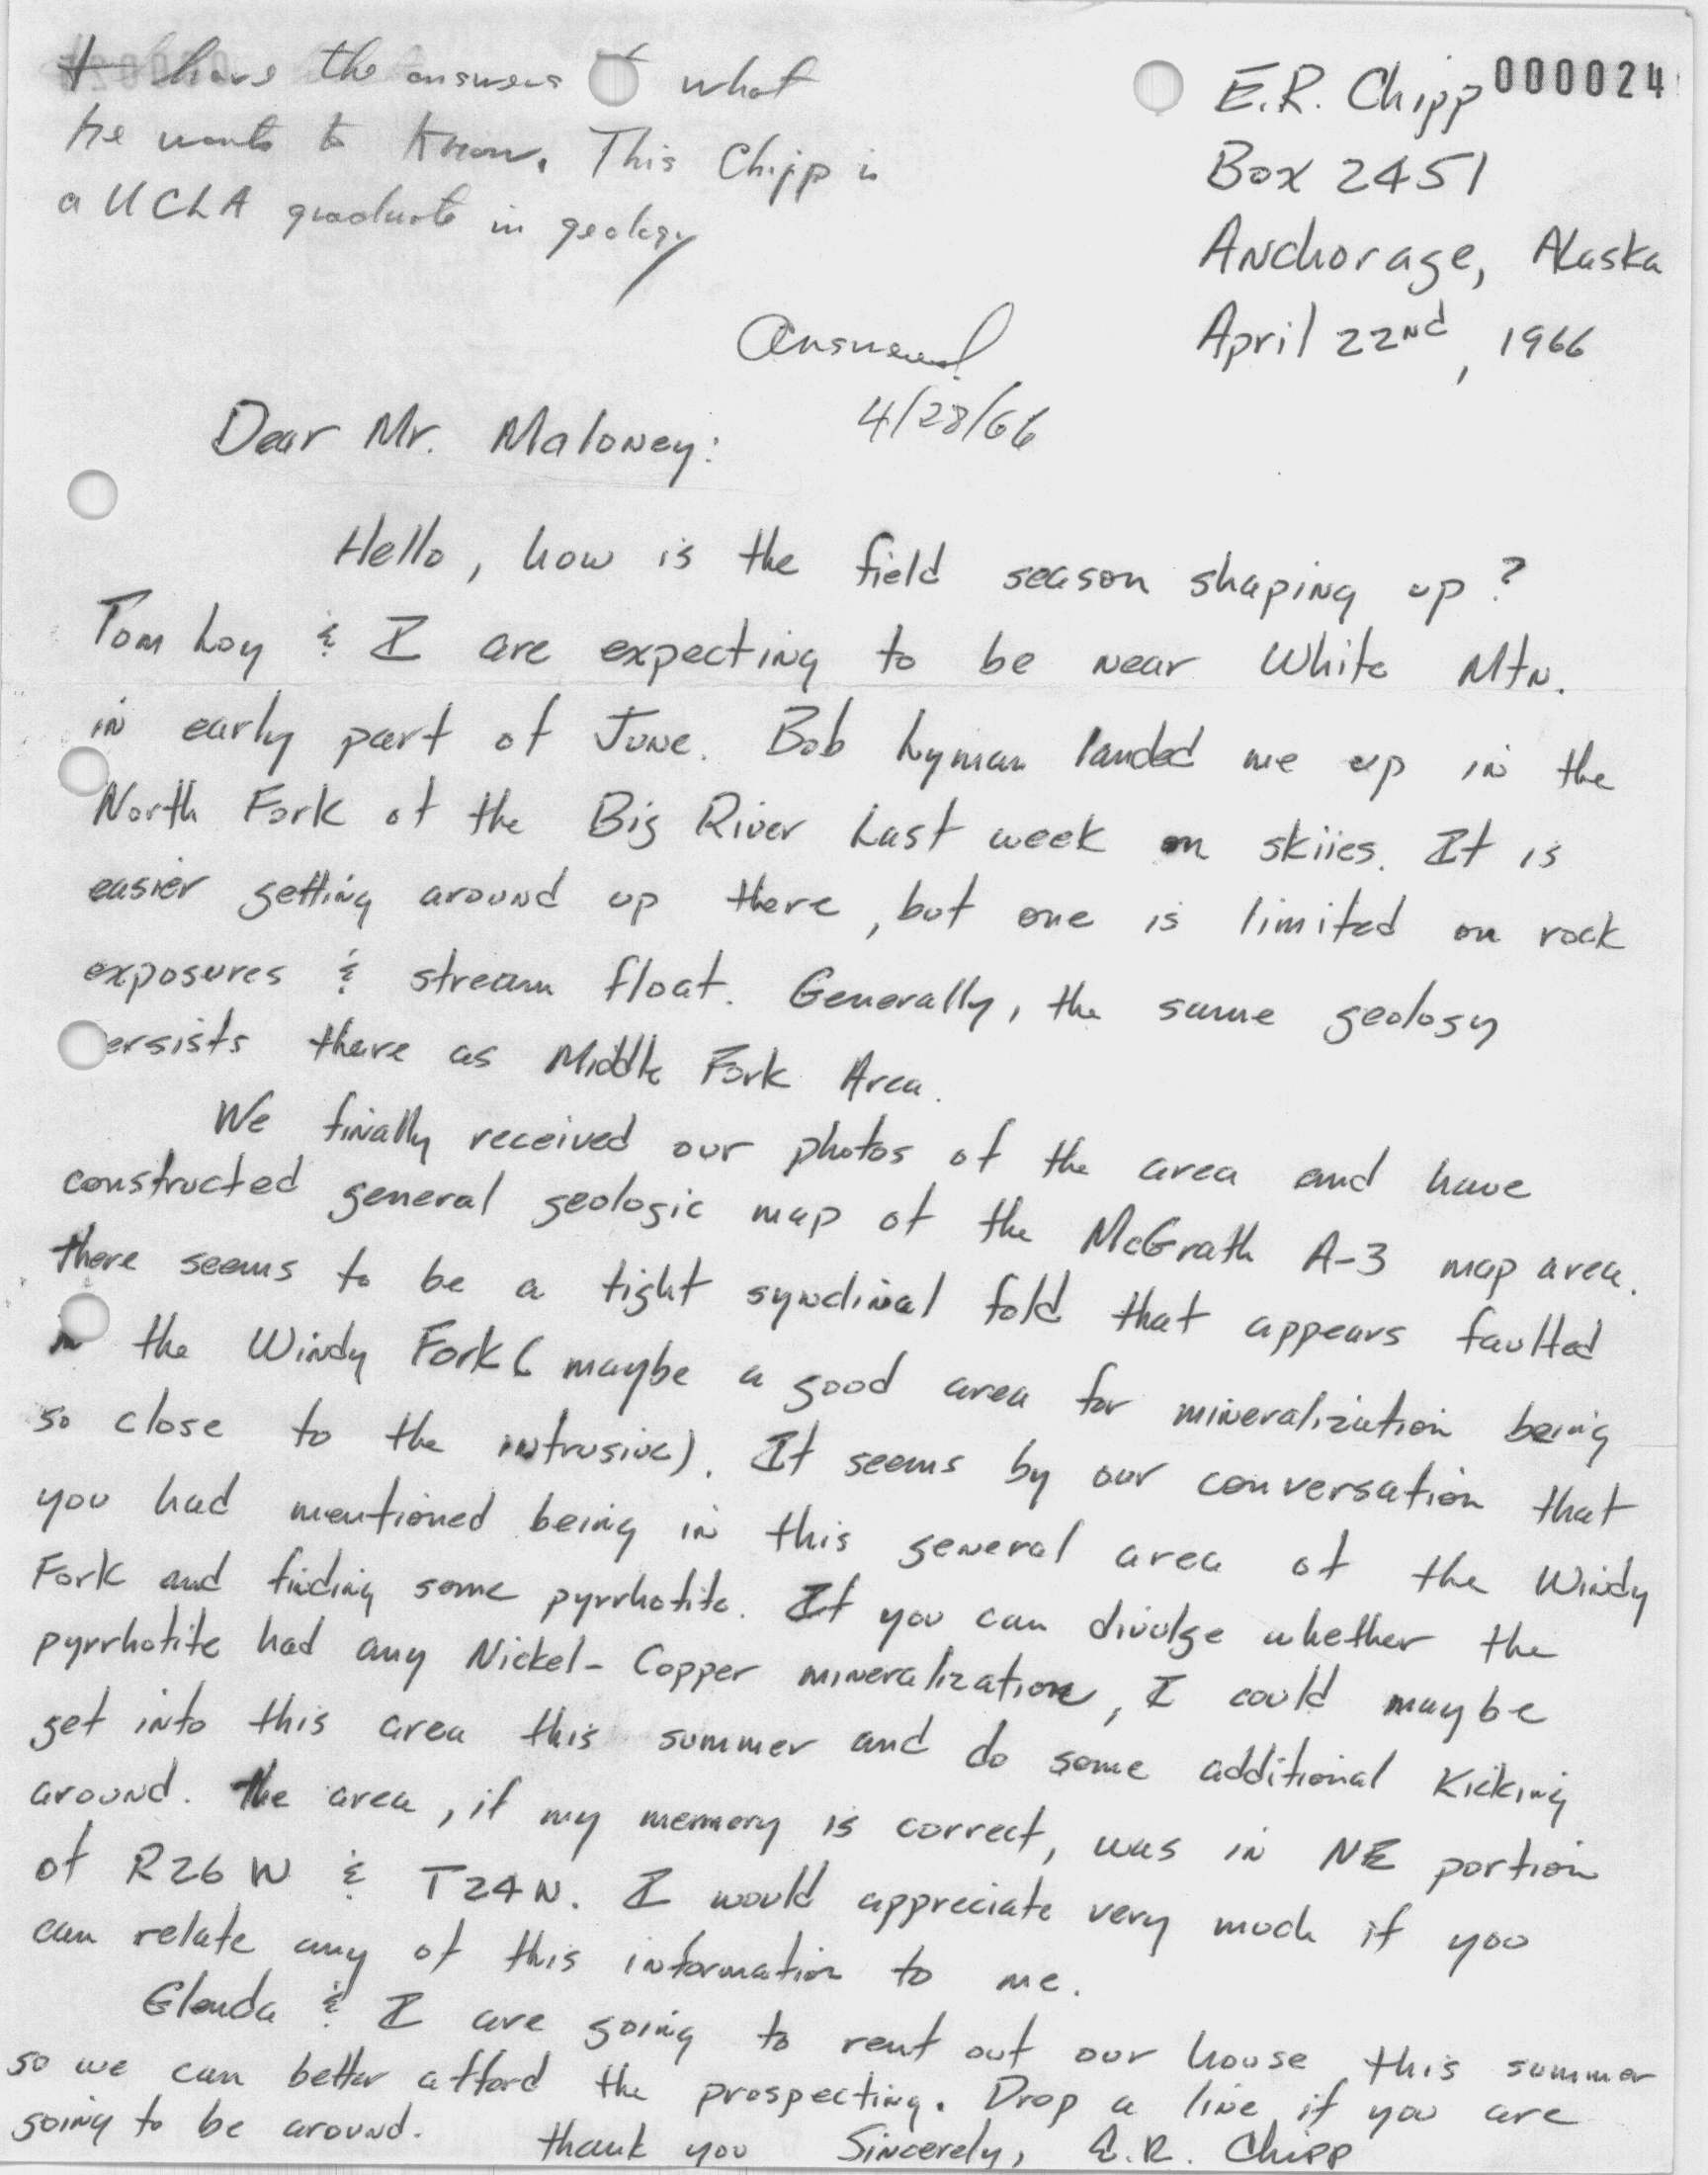 I have the answers to what
he wants to know. This Chipp is
a UCLA graduate in geology
000024
E.R. Chipp
Box 2451
Anchorage, Alaska
April 22nd, 1966
Answered
4/28/66
Dear Mr. Maloney:
Hello, how is the field season shaping up?
Tom Loy & I are expecting to be near White Mtn.
in early part of June. Bob Lyman landed me up in the
North Fork of the Big River Last week on skiies. It is
easier getting around up there, but one is limited on rock
exposures & stream float. Generally, the same geology
ersists there as Middle Fork Area.
We finally received our photos of the area and have
constructed general geologic map of the McGrath A-3 map area.
there seems to be a tight synclinal fold that appears faulted
in the Windy Fork (maybe a good area for mineralization being
so close to the intrusive). It seems by our conversation that
you had mentioned being in this general area of the Windy
Fork and finding some pyrrhotite. If you can divulge whether the
pyrrhotite had any Nickel-Copper mineralization, I could maybe
get into this area this summer and do some additional Kicking
around. the area, if my memory is correct, was in NE portion
of R26W & T24N. I would appreciate very much if you
can relate any of this information to me.
Glenda & I are going to rent out our house this summer
so we can better afford the prospecting. Drop a line if you are
going to be around. thank you Sincerely, E.R. Chipp